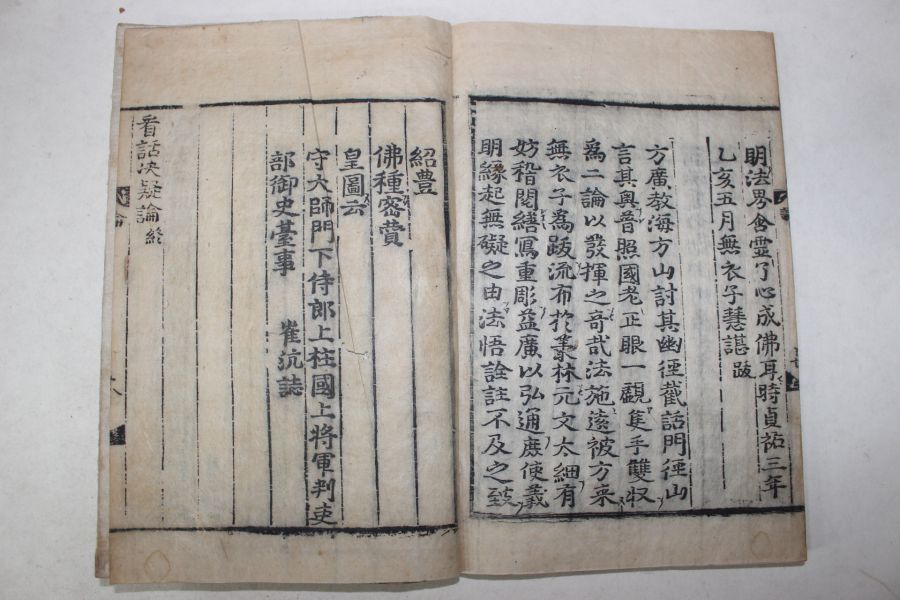 明法界含霊了心成佛耳時貞祐三年
乙亥五月無衣子慧諶跋
方廣教海方山討其幽徑截話門徑山
言其奥普照國老正眼一觀隻手雙収
為二論以發揮之奇哉法施遠被方来
無衣子為跋流布扵叢林元文太細有
妨稽閱繕寫重彫益廣以弘通庶使義
明緣起無礙之由法悟詮註不及之致
紹豊
佛種密賛
皇圖云
守大師門下侍郎上柱國上將軍判吏
部御史臺事 崔沆誌
看話决疑論終